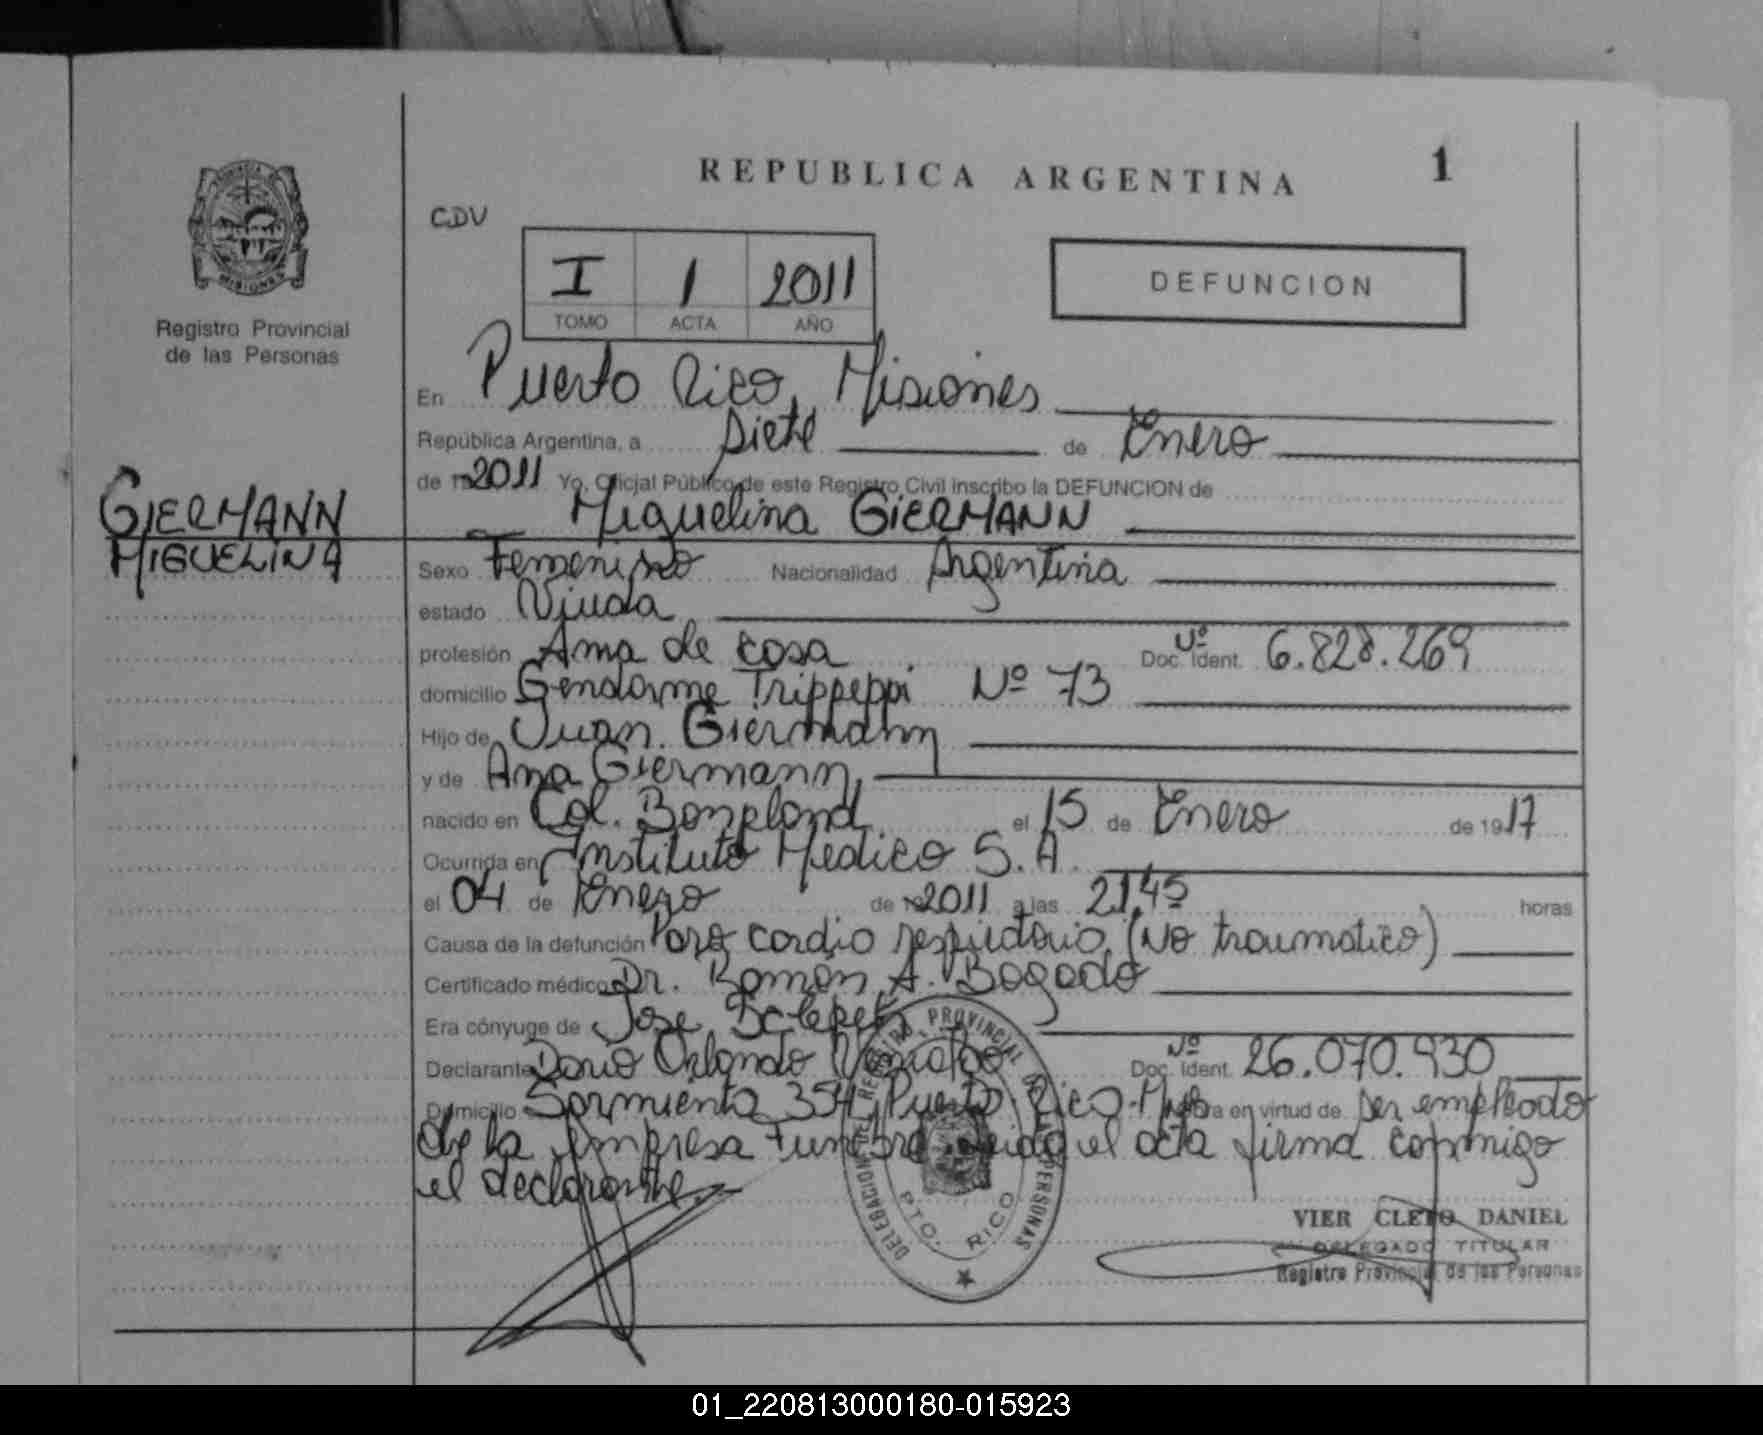 REPUBLICA ARGENTINA
1
CDV
I 1 2011
TOMO ACTA AÑO
DEFUNCION
PROVINCIA DE MISIONES
Registro Provincial
de las Personas
GIERMANN
MIGUELINA
En Puerto Rico, Misiones
República Argentina, a Siete de Enero
de 2011 Yo, Oficial Público de este Registro Civil inscribo la DEFUNCION de
Miguelina GIERMANN
Sexo Femenino Nacionalidad Argentina
estado Viuda
profesión Ama de casa Doc. Ident. Nº 6.828.269
domicilio Gendarme Trippeppi Nº 73
Hijo de Juan Giermann
y de Ana Giermann
nacido en Col. Bonpland el 15 de Enero de 1917
Ocurrida en Instituto Medico S.A.
el 04 de Enero de 2011 a las 21,45 horas
Causa de la defunción Paro cardio respiratorio (No traumatico)
Certificado médico Dr. Ramón A. Bogado
Era cónyuge de Jose
Declarante Dario Orlando Doc. Ident. Nº 26.070.930
Domicilio Sarmiento 354, Puerto Rico - Mnes Obra en virtud de ser empleado
de la empresa Funebre Leida el acta firma conmigo
el declarante.
DELEGACION DE REGISTRO PROVINCIAL DE LAS PERSONAS
PTO. RICO
VIER CLETO DANIEL
DELEGADO TITULAR
Registro Provincial de las Personas
01_220813000180-015923